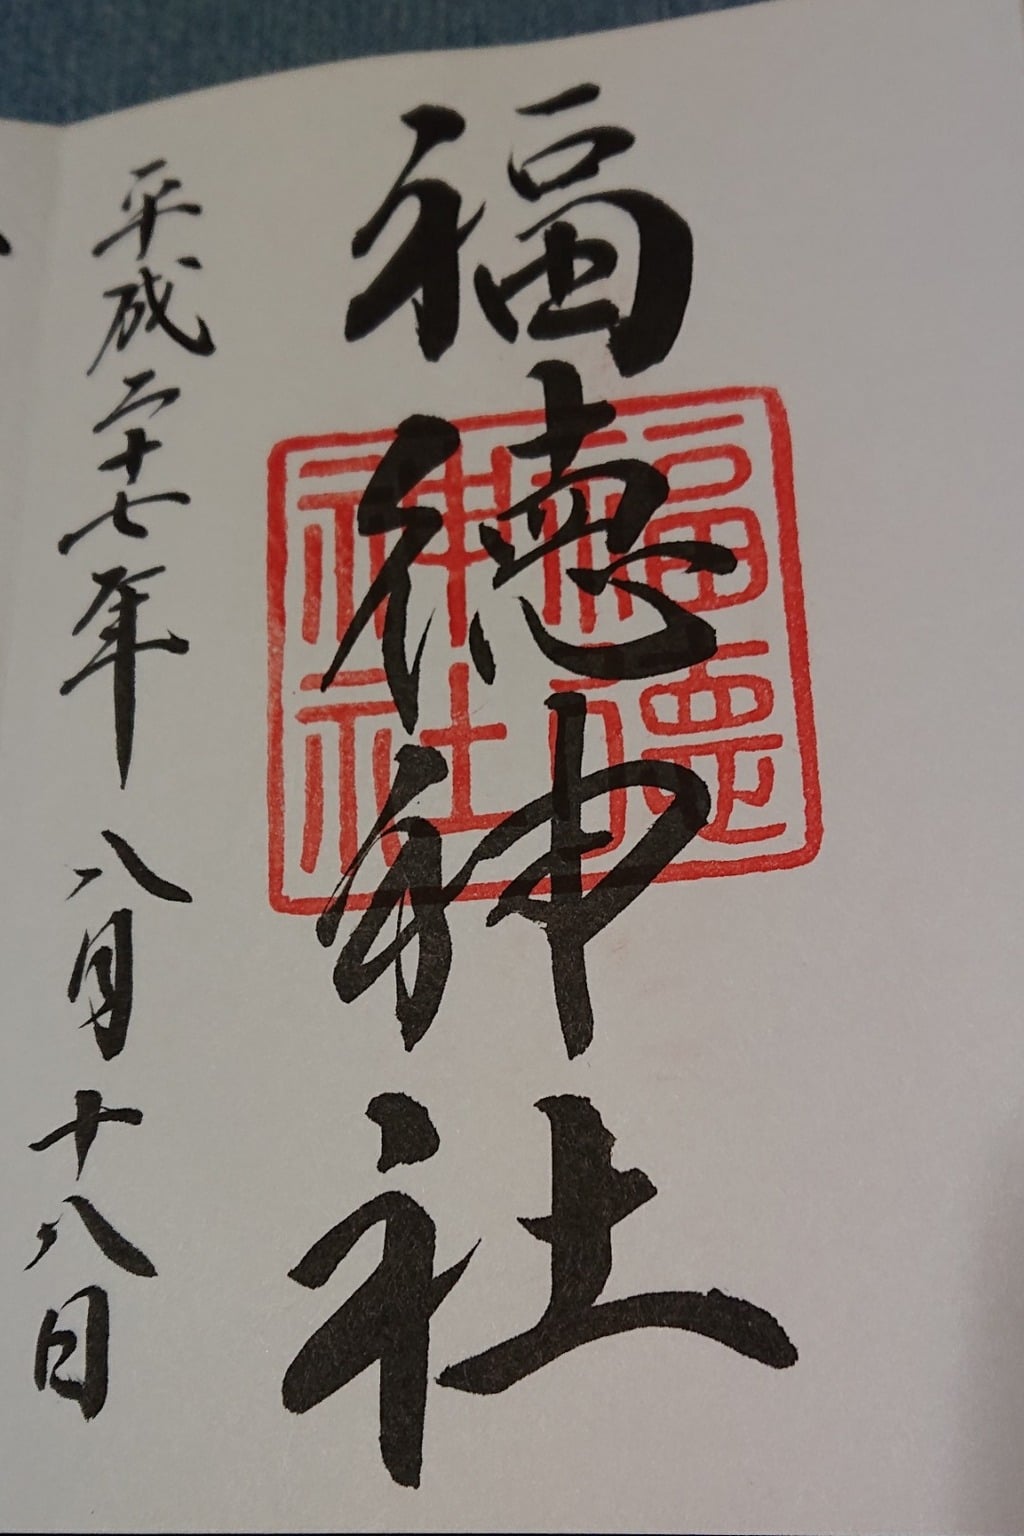 福徳神社
福徳
神社
平成二十七年 八月十八日